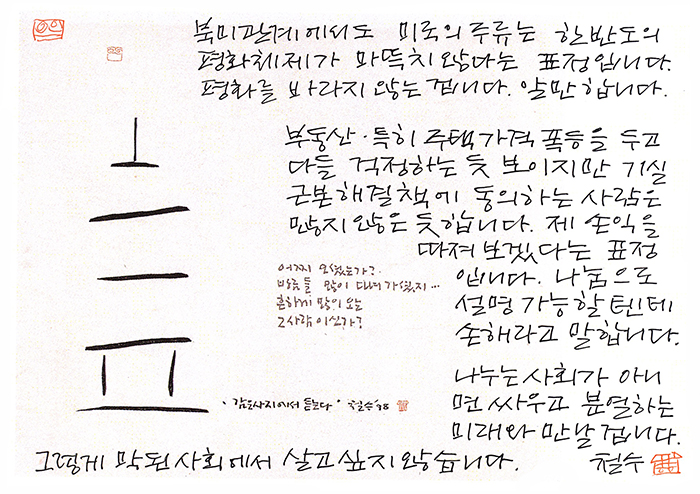 북미관계에서도 미국의 주류는 한반도의
평화체제가 마뜩치 않다는 표정입니다.
평화를 바라지 않는겁니다. 알만합니다.
부동산·특히 주택가격 폭등을 두고
다들 걱정하는 듯 보이지만 기실
근본해결책에 동의하는 사람은
많지 않은 듯합니다. 제 손익을
따져보겠다는 표정
입니다. 나눔으로
설명 가능할텐데
손해라고 말합니다.
나누는 사회가 아니
면 싸우고 분열하는
미래와 만날겁니다.
그렇게 막된 사회에서 살고 싶지 않습니다. 철수
어찌 오셨는가?
바람들 많이 다녀가셨지...
흔하게 많이 오는
그 사람이신가?
·감은사지에서 듣는다· 철수 '98